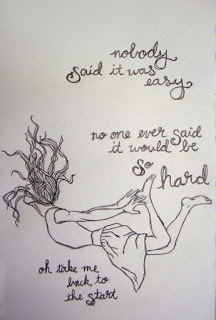 nobody
said it was
easy
no one ever said
it would be
so
hard
oh take me
back to
the start